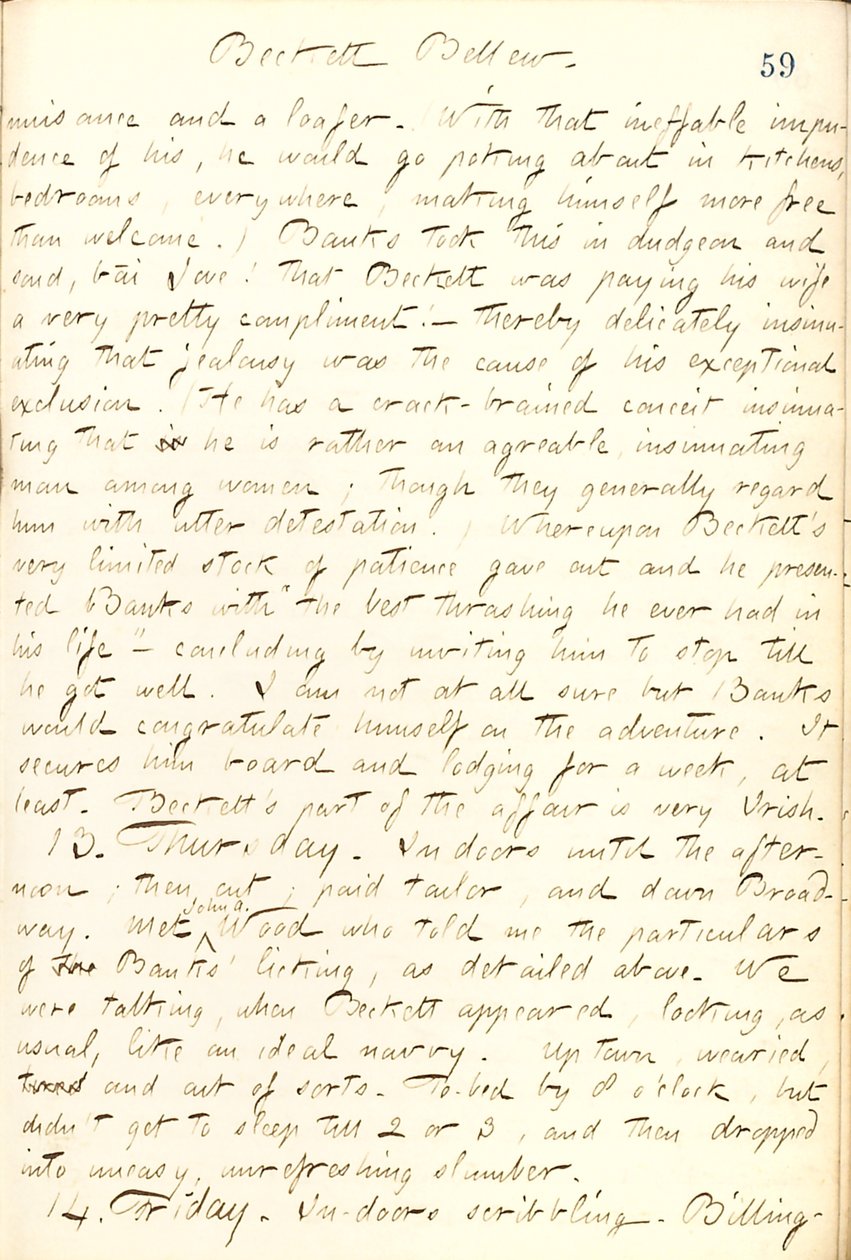 Beckett Bellew.
59
nuisance and a loafer. (With that ineffable impu-
dence of his, he would go poking about in kitchens,
bedrooms, everywhere, making himself more free
than welcome.) Banks took this in dudgeon and
said, bāi Jove! that Beckett was paying his wife
a very pretty compliment! — thereby delicately insinu-
ating that jealousy was the cause of his exceptional
exclusion. (He has a crack-brained conceit insinua-
ting that is he is rather an agreable, insinuating
man among women; though they generally regard
him with utter detestation.) Whereupon Beckett's
very limited stock of patience gave out and he presen-
ted Banks with "the best thrashing he ever had in
his life" — concluding by inviting him to stop till
he got well. I am not at all sure but Banks
would congratulate himself on the adventure. It
secures him board and lodging for a week, at
least. Beckett's part of the affair is very Irish.
13. Thursday. In doors until the after-
noon; then out; paid tailor, and down Broad-
way. Met John A. Wood who told me the particulars
of the Banks' licking, as detailed above. We
were talking, when Beckett appeared, looking, as
usual, like an ideal navvy. Up town, wearied,
tired and out of sorts. To-bed by 8 o'clock, but
didn't get to sleep till 2 or 3, and then dropped
into uneasy, unrefreshing slumber.
14. Friday. In-doors scribbling. Billing-